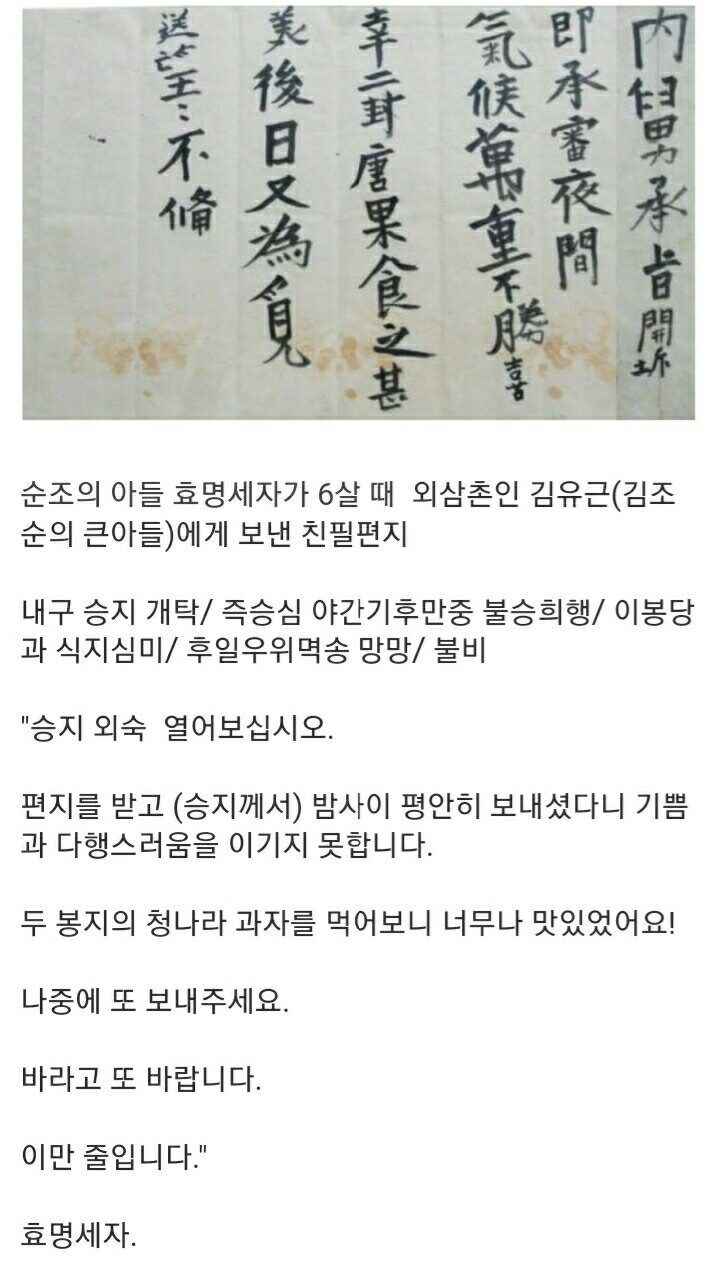 內舅男承旨開坼
即承審夜間
氣候萬重不勝喜
幸二封唐果食之甚
美後日又為覓
送望〻不備
순조의 아들 효명세자가 6살 때 외삼촌인 김유근(김조
순의 큰아들)에게 보낸 친필편지
내구 승지 개탁/ 즉승심 야간기후만중 불승희행/ 이봉당
과 식지심미/ 후일우위멱송 망망/ 불비
"승지 외숙 열어보십시오.
편지를 받고 (승지께서) 밤사이 평안히 보내셨다니 기쁨
과 다행스러움을 이기지 못합니다.
두 봉지의 청나라 과자를 먹어보니 너무나 맛있었어요!
나중에 또 보내주세요.
바라고 또 바랍니다.
이만 줄입니다."
효명세자.